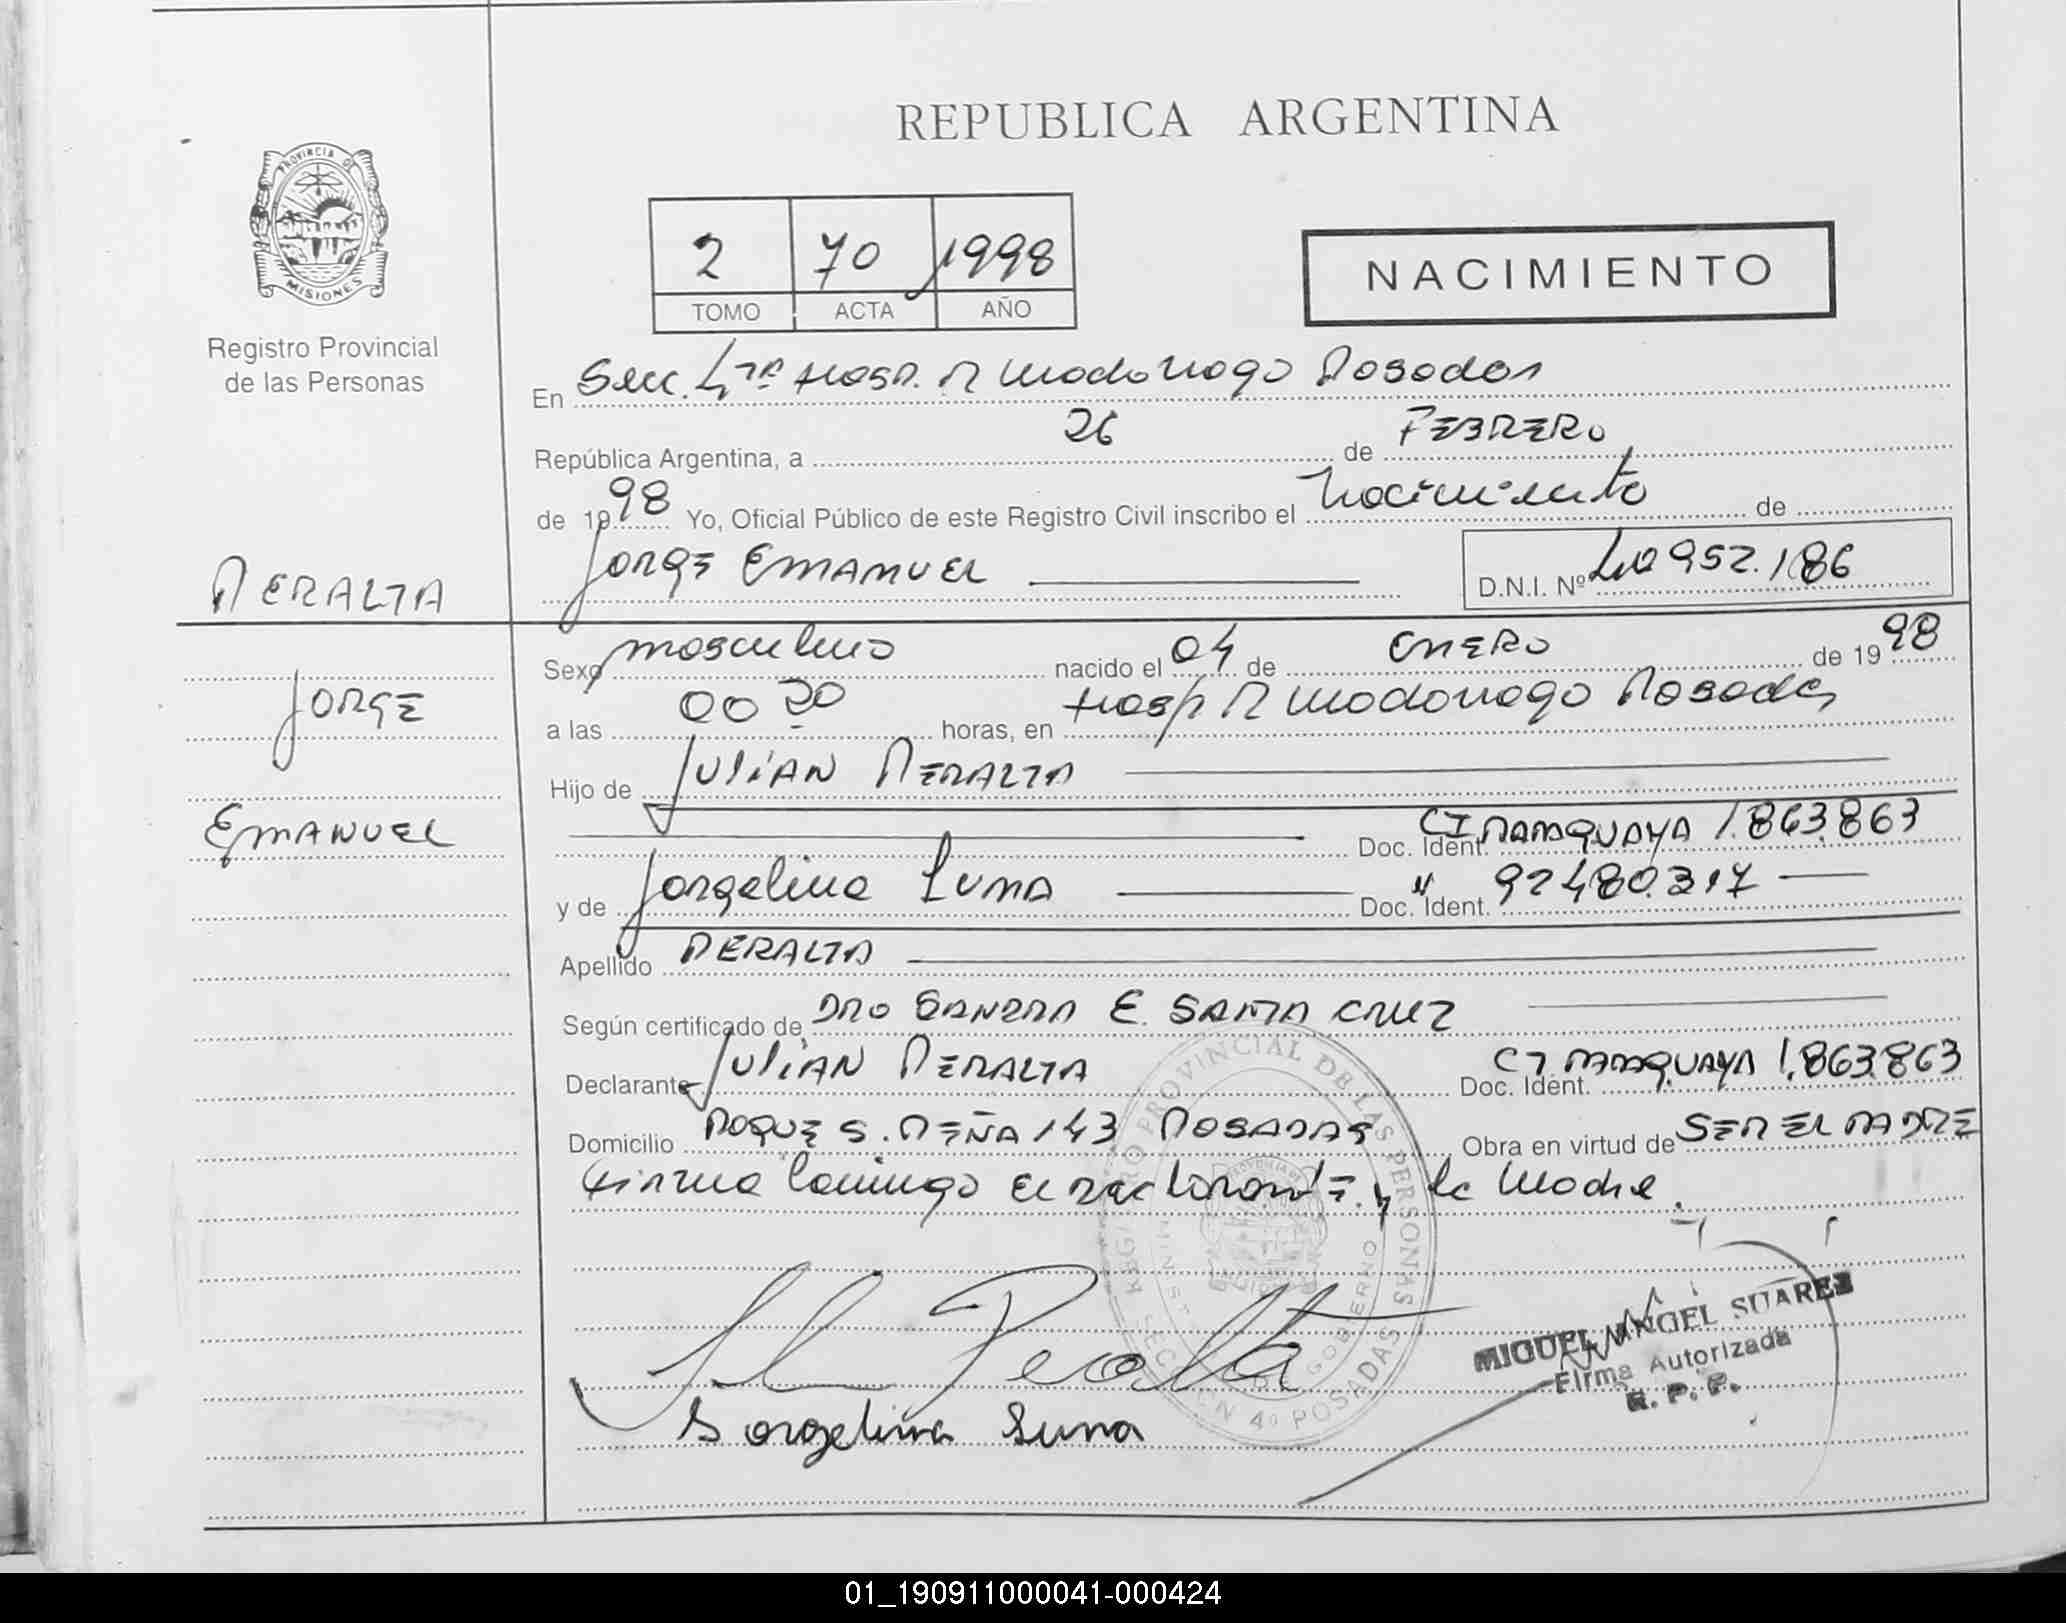 REPUBLICA ARGENTINA
PROVINCIA DE
MISIONES
Registro Provincial
de las Personas
2 70 1998
TOMO ACTA AÑO
NACIMIENTO
En Secc. 4ta Hosp. R Madariaga Posadas
República Argentina, a 26 de FEBRERO
de 1998 Yo, Oficial Público de este Registro Civil inscribo el Nacimiento de
JORGE EMANUEL D.N.I. Nº 40952.186
PERALTA
JORGE
EMANUEL
Sexo masculino nacido el 04 de ENERO de 1998
a las 00 20 horas, en Hosp R Madariaga Posadas
Hijo de JULIAN PERALTA
Doc. Ident. CI PARAGUAYA 1.863.863
y de Jorgelina LUNA Doc. Ident. " 92480.317
Apellido PERALTA
Según certificado de DRA SANDRA E. SANTA CRUZ
Declarante JULIAN PERALTA Doc. Ident. CI PARAGUAYA 1.863.863
Domicilio ROQUE S. PEÑA 143 POSADAS Obra en virtud de SER EL PADRE
Firma conmigo el declarante y la Madre.
REGISTRO PROVINCIAL DE LAS PERSONAS
SECCION 4º POSADAS
Peralta
Jorgelina Luna
MIGUEL ANGEL SUAREZ
Firma Autorizada
R. P. P.
01_190911000041-000424